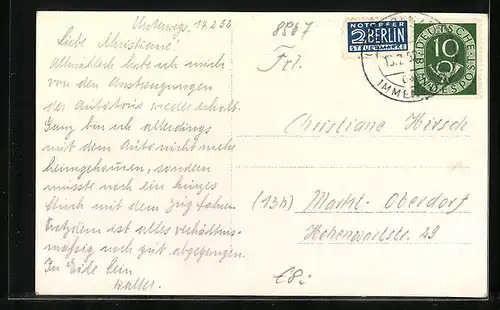 Unterwegs, 14.2.54
Liebe Christiane!
Allmählich habe ich mich
von den Anstrengungen
der Autotour wieder erholt.
Ganz bin ich allerdings
mit dem Auto nicht mehr
heimgekommen, sondern
musste noch ein kurzes
Stück mit dem Zug fahren.
Trotzdem ist alles verhältnis-
mässig noch gut abgegangen.
In Eile Dein
Walter.
8867
NOTOPFER
2 BERLIN
STEUERMARKE
DEUTSCHE
BUNDESPOST
10
15.2.5
IMMEN
Frl.
Christiane Hirsch
(13b) Markt-Oberdorf
Hohenwartstr. 29